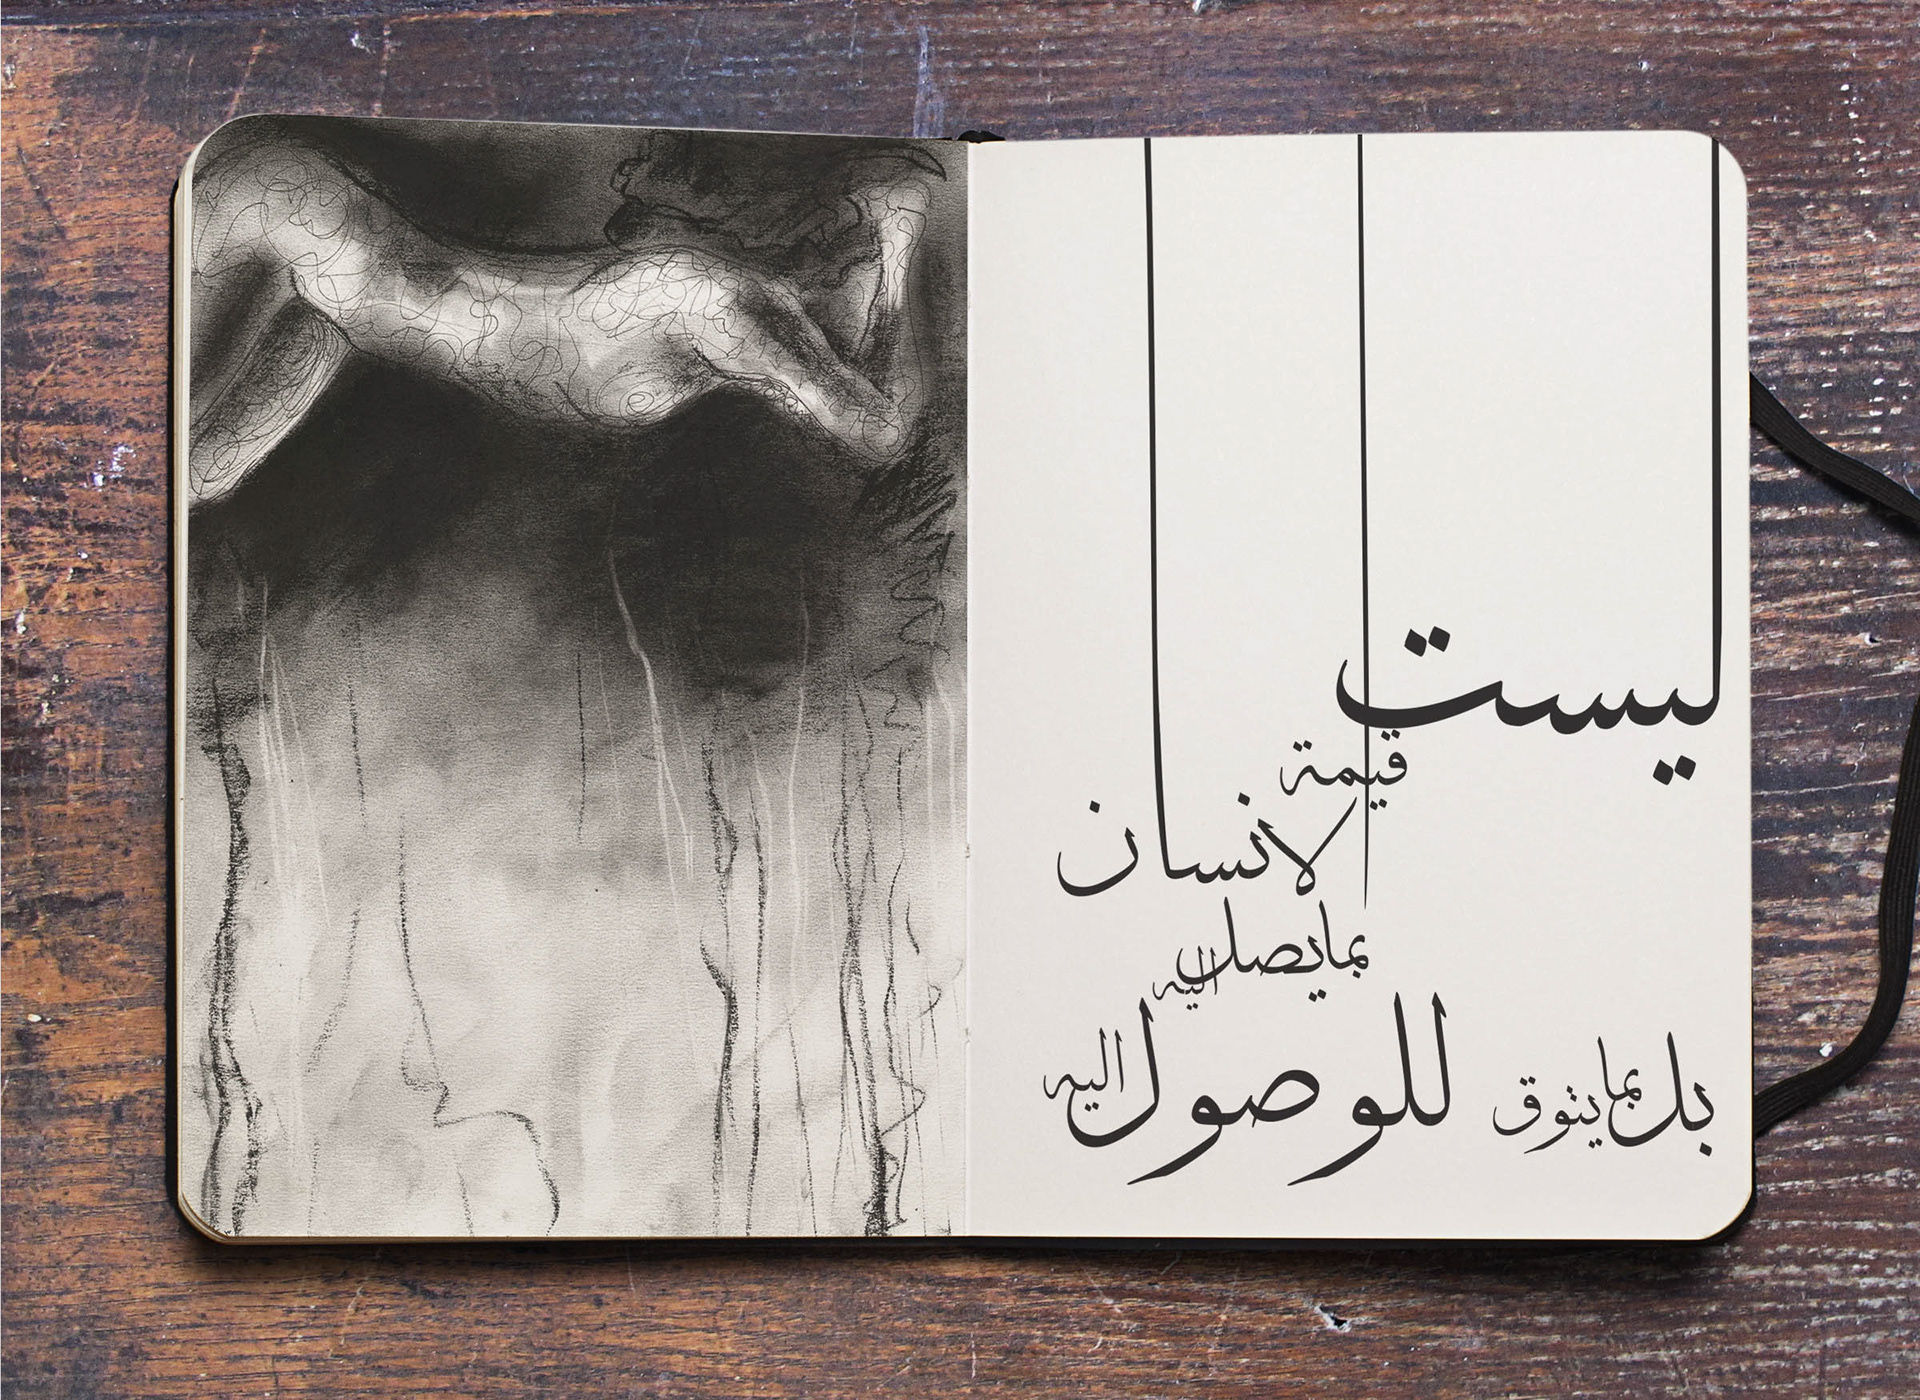 ليست
قيمة
الانسان
بما يصل
اليه
بل بما يتوق للوصول اليه